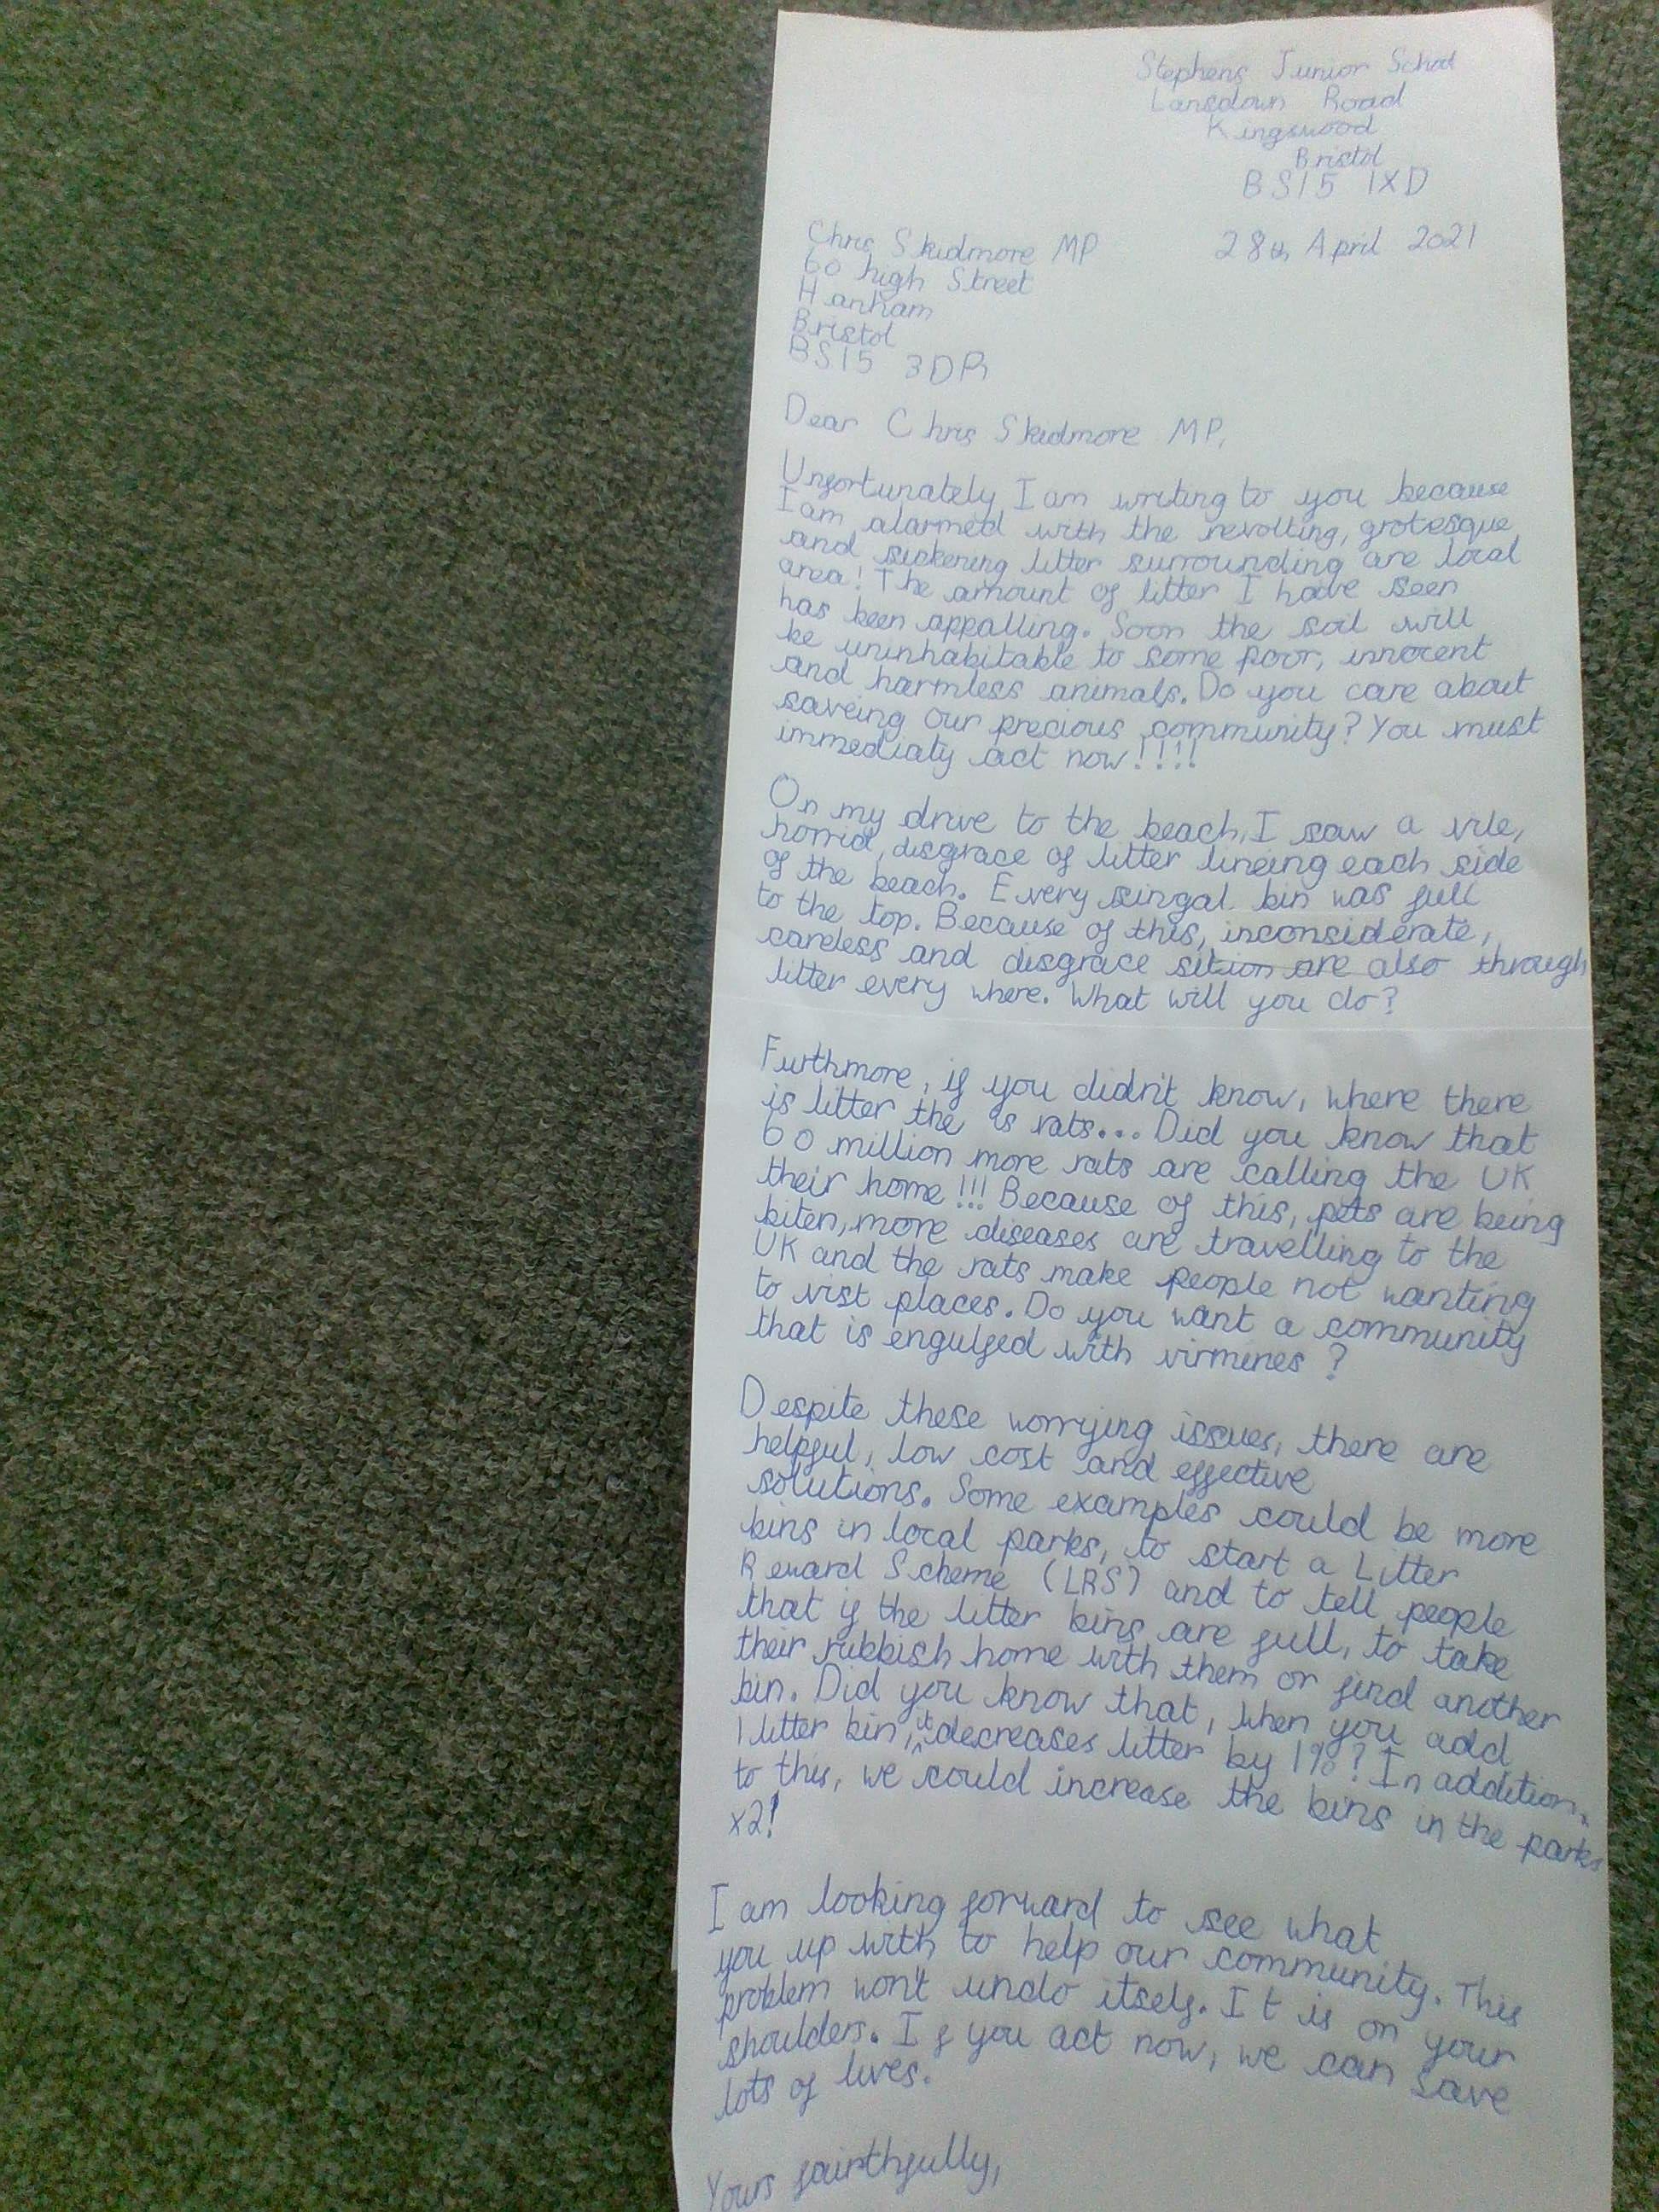 Stephens Junior School
Lansdown Road
Kingswood
Bristol
BS15 1XD
Chris Skidmore MP
28th April 2021
60 high Street
Hanham
Bristol
BS15 3DR
Dear Chris Skidmore MP,
Unfortunately I am writing to you because
I am alarmed with the revolting, grotesque
and sickening litter surrounding are local
area! The amount of litter I have seen
has been appalling. Soon the soil will
be uninhabitable to some poor, innocent
and harmless animals. Do you care about
saveing our precious community? You must
immediatly act now!!!!
On my drive to the beach, I saw a vile,
horrid, disgrace of litter lineing each side
of the beach. Every singal bin was full
to the top. Because of this, inconsiderate,
careless and disgrace sition are also through
litter every where. What will you do?
Furthmore, if you didn't know, where there
is litter the is rats... Did you know that
60 million more rats are calling the UK
their home!!! Because of this, pets are being
biten, more diseases are travelling to the
UK and the rats make people not wanting
to vist places. Do you want a community
that is engulfed with virmines?
Despite these worrying issues, there are
helpful, low cost and effective
solutions. Some examples could be more
bins in local parks, to start a Litter
Reward Scheme (LRS) and to tell people
that if the litter bins are full, to take
their rubbish home with them or find another
bin. Did you know that, when you add
1 litter bin, it decreases litter by 1%? In addition,
to this, we could increase the bins in the parks
x2!
I am looking forward to see what
you up with to help our community. This
problem won't undo itself. It is on your
shoulders. If you act now, we can save
lots of lives.
Yours fairthfully,